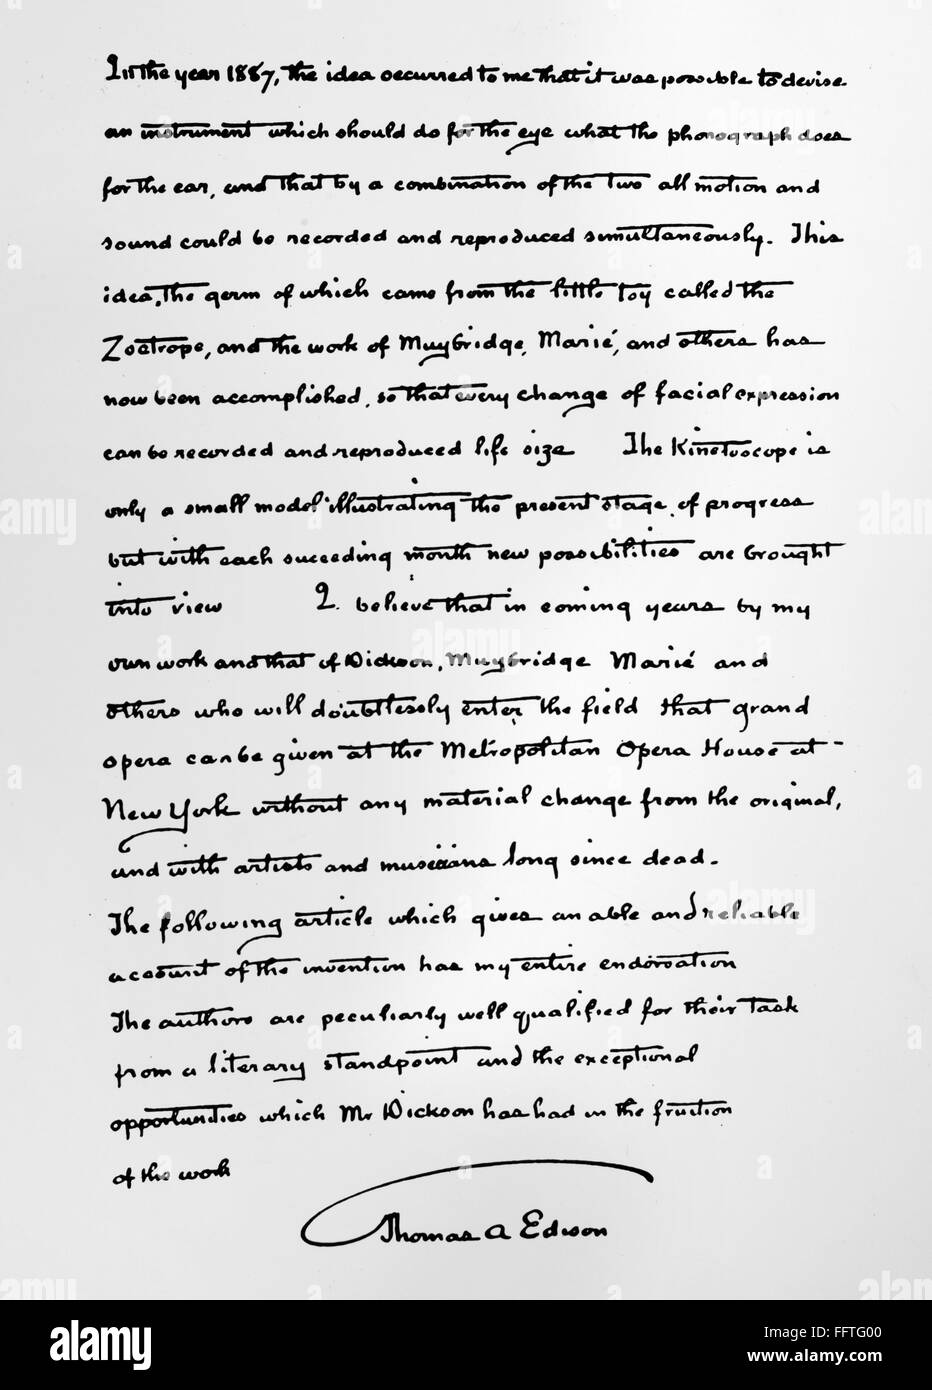 In the year 1887, the idea occurred to me that it was possible to devise
an instrument which should do for the eye what the phonograph does
for the ear, and that by a combination of the two all motion and
sound could be recorded and reproduced simultaneously. This
idea, the germ of which came from the little toy called the
Zoetrope, and the work of Muybridge, Marié, and others has
now been accomplished, so that every change of facial expression
can be recorded and reproduced life size The Kinetoscope is
only a small model illustrating the present stage of progress
but with each succeeding month new possibilities are brought
into view I believe that in coming years by my
own work and that of Dickson, Muybridge Marié and
others who will doubtlessly enter the field that grand
opera can be given at the Metropolitan Opera House at
New York without any material change from the original,
and with artists and musicians long since dead.
The following article which gives an able and reliable
account of the invention has my entire endorsation
The authors are peculiarly well qualified for their task
from a literary standpoint and the exceptional
opportunities which Mr Dickson has had in the fruition
of the work
Thomas A Edison
alamy
Image ID: FFTG00
www.alamy.com